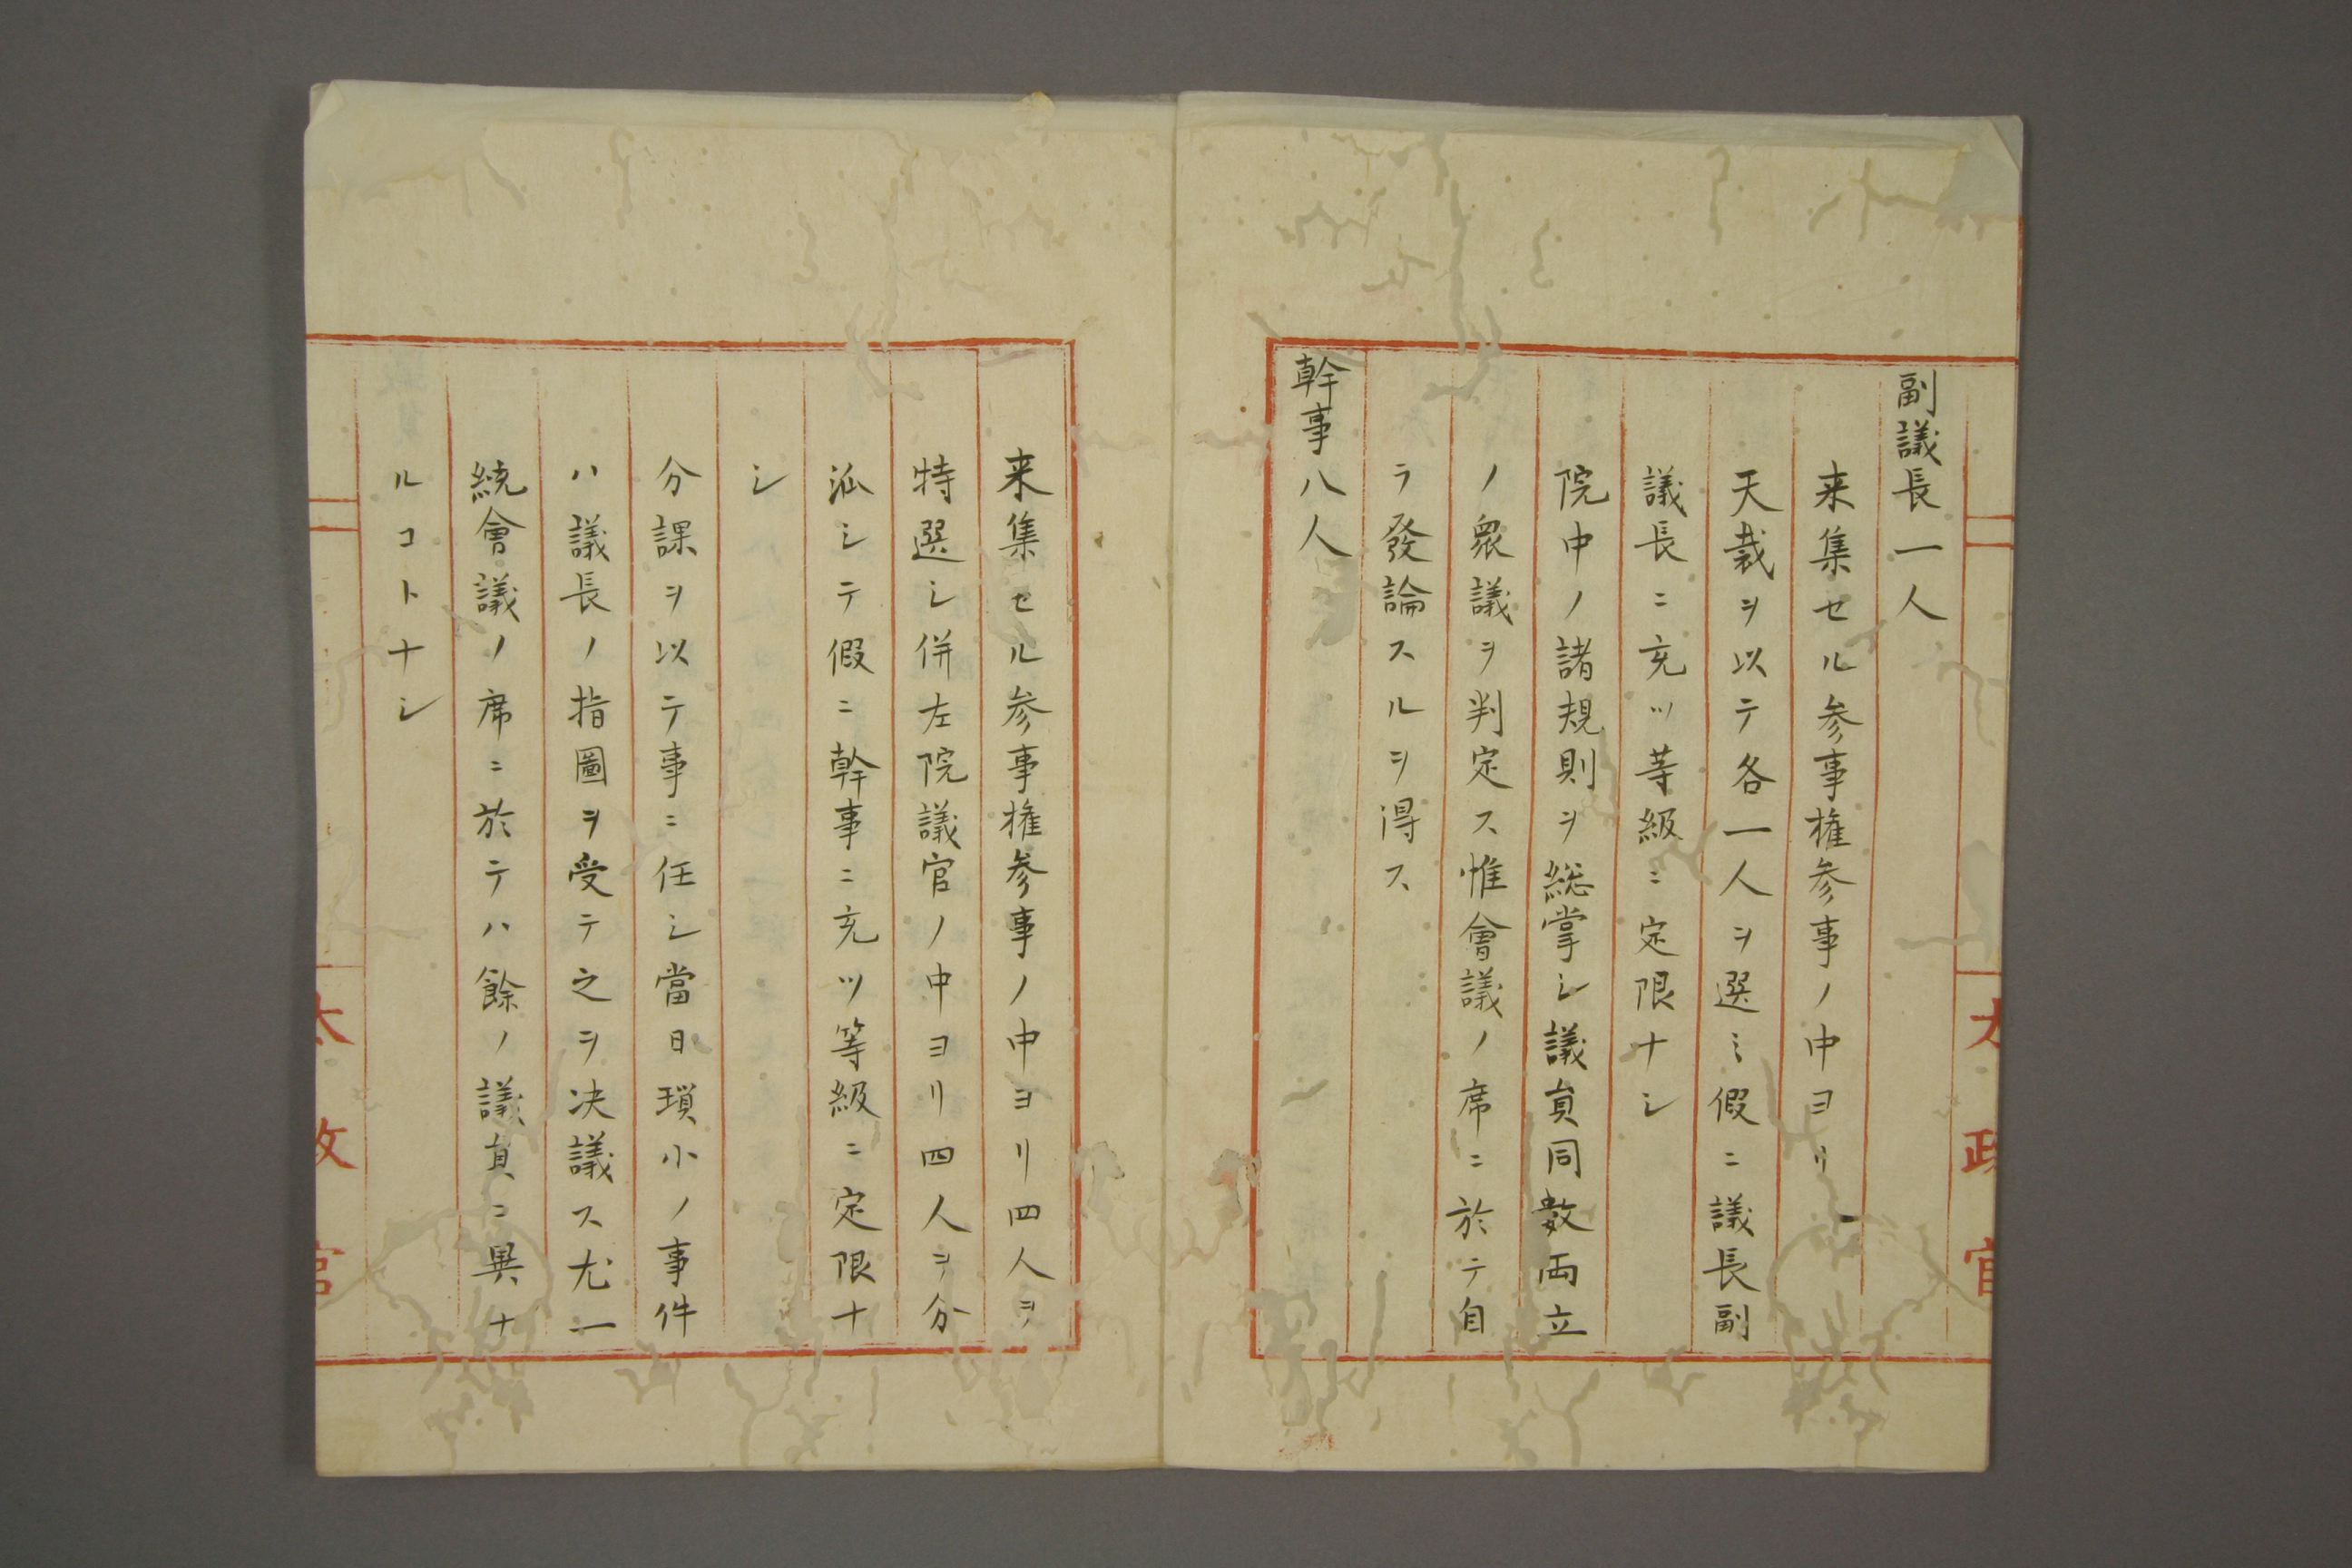 副議長一人
来集セル参事権参事ノ中ヨリ
天裁ヲ以テ各一人ヲ選ミ假ニ議長副
議長ニ充ツ等級ニ定限ナシ
院中ノ諸規則ヲ総掌シ議員同数両立
ノ衆議ヲ判定ス惟會議ノ席ニ於テ自
ラ發論スルヲ得ス
幹事八人
太政官
来集セル参事権参事ノ中ヨリ四人ヲ
特選シ併左院議官ノ中ヨリ四人ヲ分
派シテ假ニ幹事ニ充ツ等級ニ定限ナ
シ
分課ヲ以テ事ニ任シ當日瑣小ノ事件
ハ議長ノ指圖ヲ受テ之ヲ决議ス尤一
統會議ノ席ニ於テハ餘ノ議員ニ異ナ
ルコトナシ
太政官